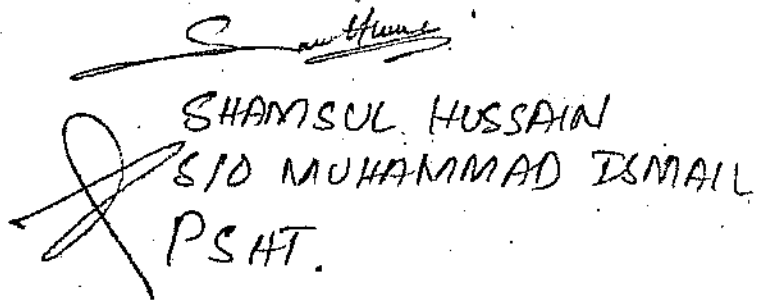 SHAMSUL HUSSAIN
S/O MUHAMMAD ISMAIL
PSHT.